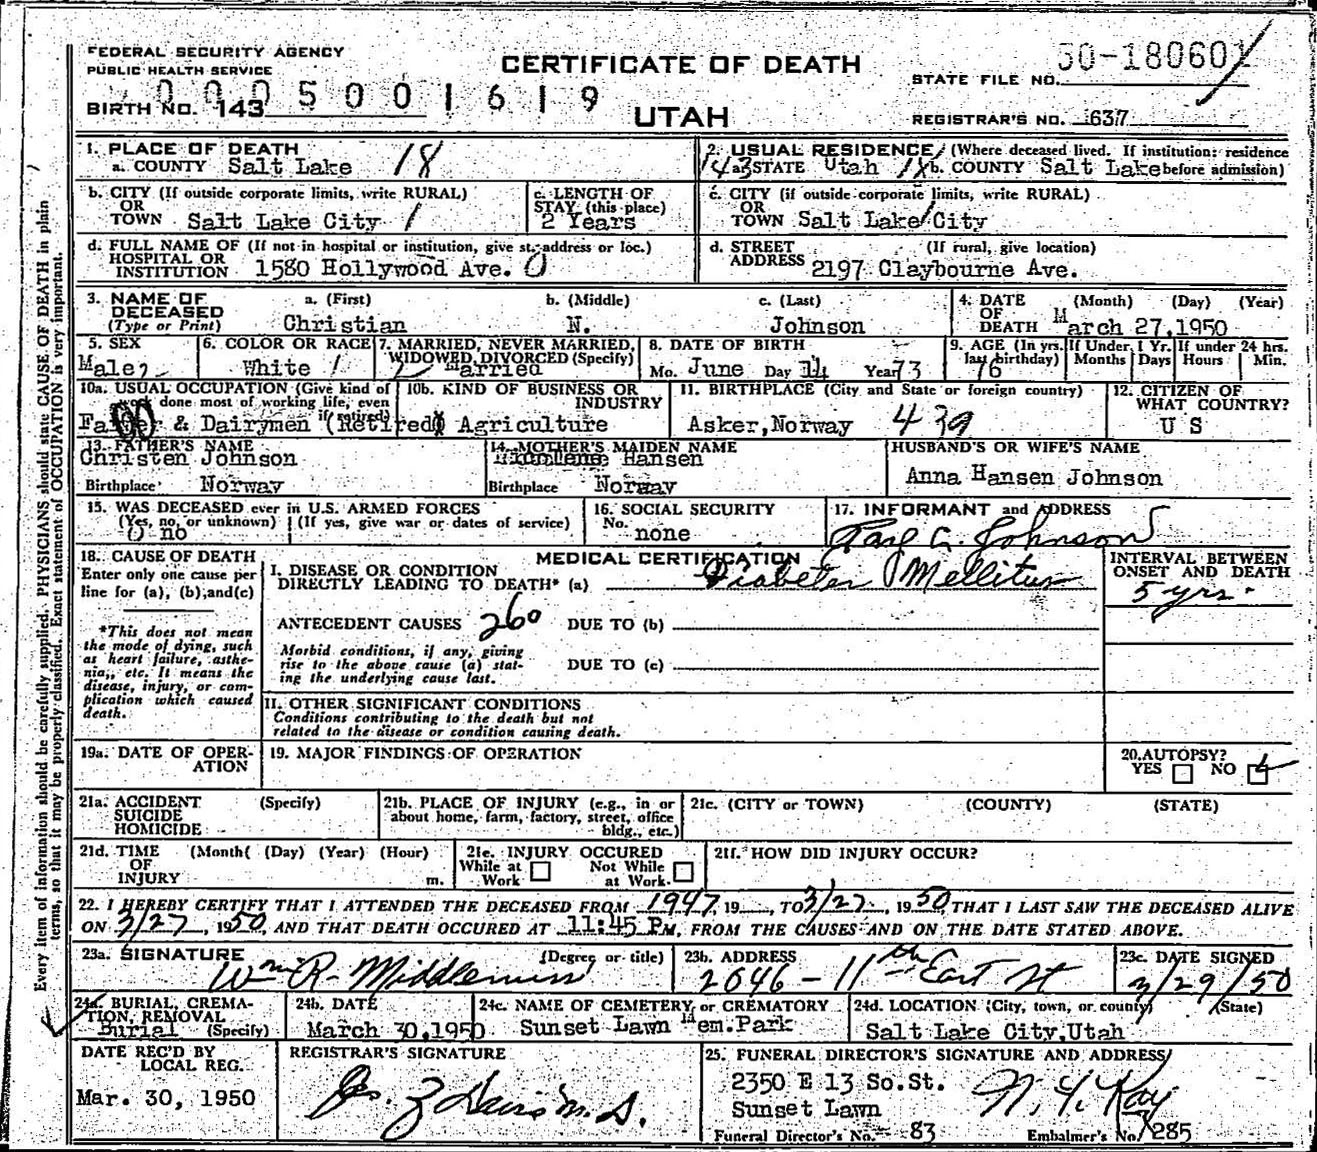 FEDERAL SECURITY AGENCY
PUBLIC HEALTH SERVICE
CERTIFICATE OF DEATH
UTAH
BIRTH NO. 143 0005001619
STATE FILE NO. 50-180601
REGISTRAR'S NO. 637
1. PLACE OF DEATH
a. COUNTY Salt Lake 18
2. USUAL RESIDENCE (Where deceased lived. If institution: residence before admission)
143 a. STATE Utah 18 b. COUNTY Salt Lake
b. CITY (If outside corporate limits, write RURAL)
OR
TOWN Salt Lake City 1
c. LENGTH OF
STAY (this place)
2 Years
c. CITY (if outside corporate limits, write RURAL)
OR
TOWN Salt Lake City
d. FULL NAME OF (If not in hospital or institution, give st. address or loc.)
HOSPITAL OR
INSTITUTION 1580 Hollywood Ave. 0
d. STREET (If rural, give location)
ADDRESS 2197 Claybourne Ave.
3. NAME OF DECEASED
(Type or Print)
a. (First) b. (Middle) c. (Last)
Christian N. Johnson
4. DATE OF DEATH (Month) (Day) (Year)
March 27,1950
5. SEX
Male
6. COLOR OR RACE
White 1
7. MARRIED, NEVER MARRIED,
WIDOWED, DIVORCED (Specify)
Married
8. DATE OF BIRTH
Mo. June Day 14 Year 73
9. AGE (In yrs. last birthday) If Under 1 Yr. Months Days If under 24 hrs. Hours Min.
76
10a. USUAL OCCUPATION (Give kind of
work done most of working life, even
if retired)
Farmer & Dairymen (Retired)
10b. KIND OF BUSINESS OR
INDUSTRY
Agriculture
11. BIRTHPLACE (City and State or foreign country)
Asker, Norway 439
12. CITIZEN OF
WHAT COUNTRY?
U S
13. FATHER'S NAME
Christen Johnson
Birthplace Norway
14. MOTHER'S MAIDEN NAME
Hansen
Birthplace Norway
HUSBAND'S OR WIFE'S NAME
Anna Hansen Johnson
15. WAS DECEASED ever in U.S. ARMED FORCES
(Yes, no, or unknown) (If yes, give war or dates of service)
0 no
16. SOCIAL SECURITY
No.
none
17. INFORMANT and ADDRESS
Johnson
18. CAUSE OF DEATH
Enter only one cause per
line for (a), (b), and (c)
*This does not mean
the mode of dying, such
as heart failure, asthe-
nia, etc. It means the
disease, injury, or com-
plication which caused
death.
MEDICAL CERTIFICATION
I. DISEASE OR CONDITION
DIRECTLY LEADING TO DEATH* (a) Diabetes Mellitus
ANTECEDENT CAUSES 260 DUE TO (b)
Morbid conditions, if any, giving
rise to the above cause (a) stat-
ing the underlying cause last.
DUE TO (c)
INTERVAL BETWEEN
ONSET AND DEATH
5 yrs.
II. OTHER SIGNIFICANT CONDITIONS
Conditions contributing to the death but not
related to the disease or condition causing death.
19a. DATE OF OPER-
ATION
19. MAJOR FINDINGS OF OPERATION
20. AUTOPSY?
YES NO
21a. ACCIDENT (Specify)
SUICIDE
HOMICIDE
21b. PLACE OF INJURY (e.g., in or
about home, farm, factory, street, office
bldg., etc.)
21c. (CITY or TOWN) (COUNTY) (STATE)
21d. TIME (Month( (Day) (Year) (Hour)
OF
INJURY m.
21e. INJURY OCCURED
While at Work Not While at Work
21f. HOW DID INJURY OCCUR?
22. I HEREBY CERTIFY THAT I ATTENDED THE DECEASED FROM 1947, 19 , TO 3/27, 1950, THAT I LAST SAW THE DECEASED ALIVE
ON 3/27, 1950, AND THAT DEATH OCCURED AT 11:45 P M, FROM THE CAUSES AND ON THE DATE STATED ABOVE.
23a. SIGNATURE (Degree or title)
Wm R. Middlemiss
23b. ADDRESS
2046 - 11th East St
23c. DATE SIGNED
3/29/50
24a. BURIAL, CREMA-
TION, REMOVAL
Burial (Specify)
24b. DATE
March 30,1950
24c. NAME OF CEMETERY or CREMATORY
Sunset Lawn Mem.Park
24d. LOCATION (City, town, or county) (State)
Salt Lake City,Utah
DATE REC'D BY
LOCAL REG.
Mar. 30, 1950
REGISTRAR'S SIGNATURE
25. FUNERAL DIRECTOR'S SIGNATURE AND ADDRESS
2350 E 13 So.St.
Sunset Lawn
Funeral Director's No. 83 Embalmer's No. 285
Every item of information should be carefully supplied. PHYSICIANS should state CAUSE OF DEATH in plain
terms, so that it may be properly classified. Exact statement of OCCUPATION is very important.